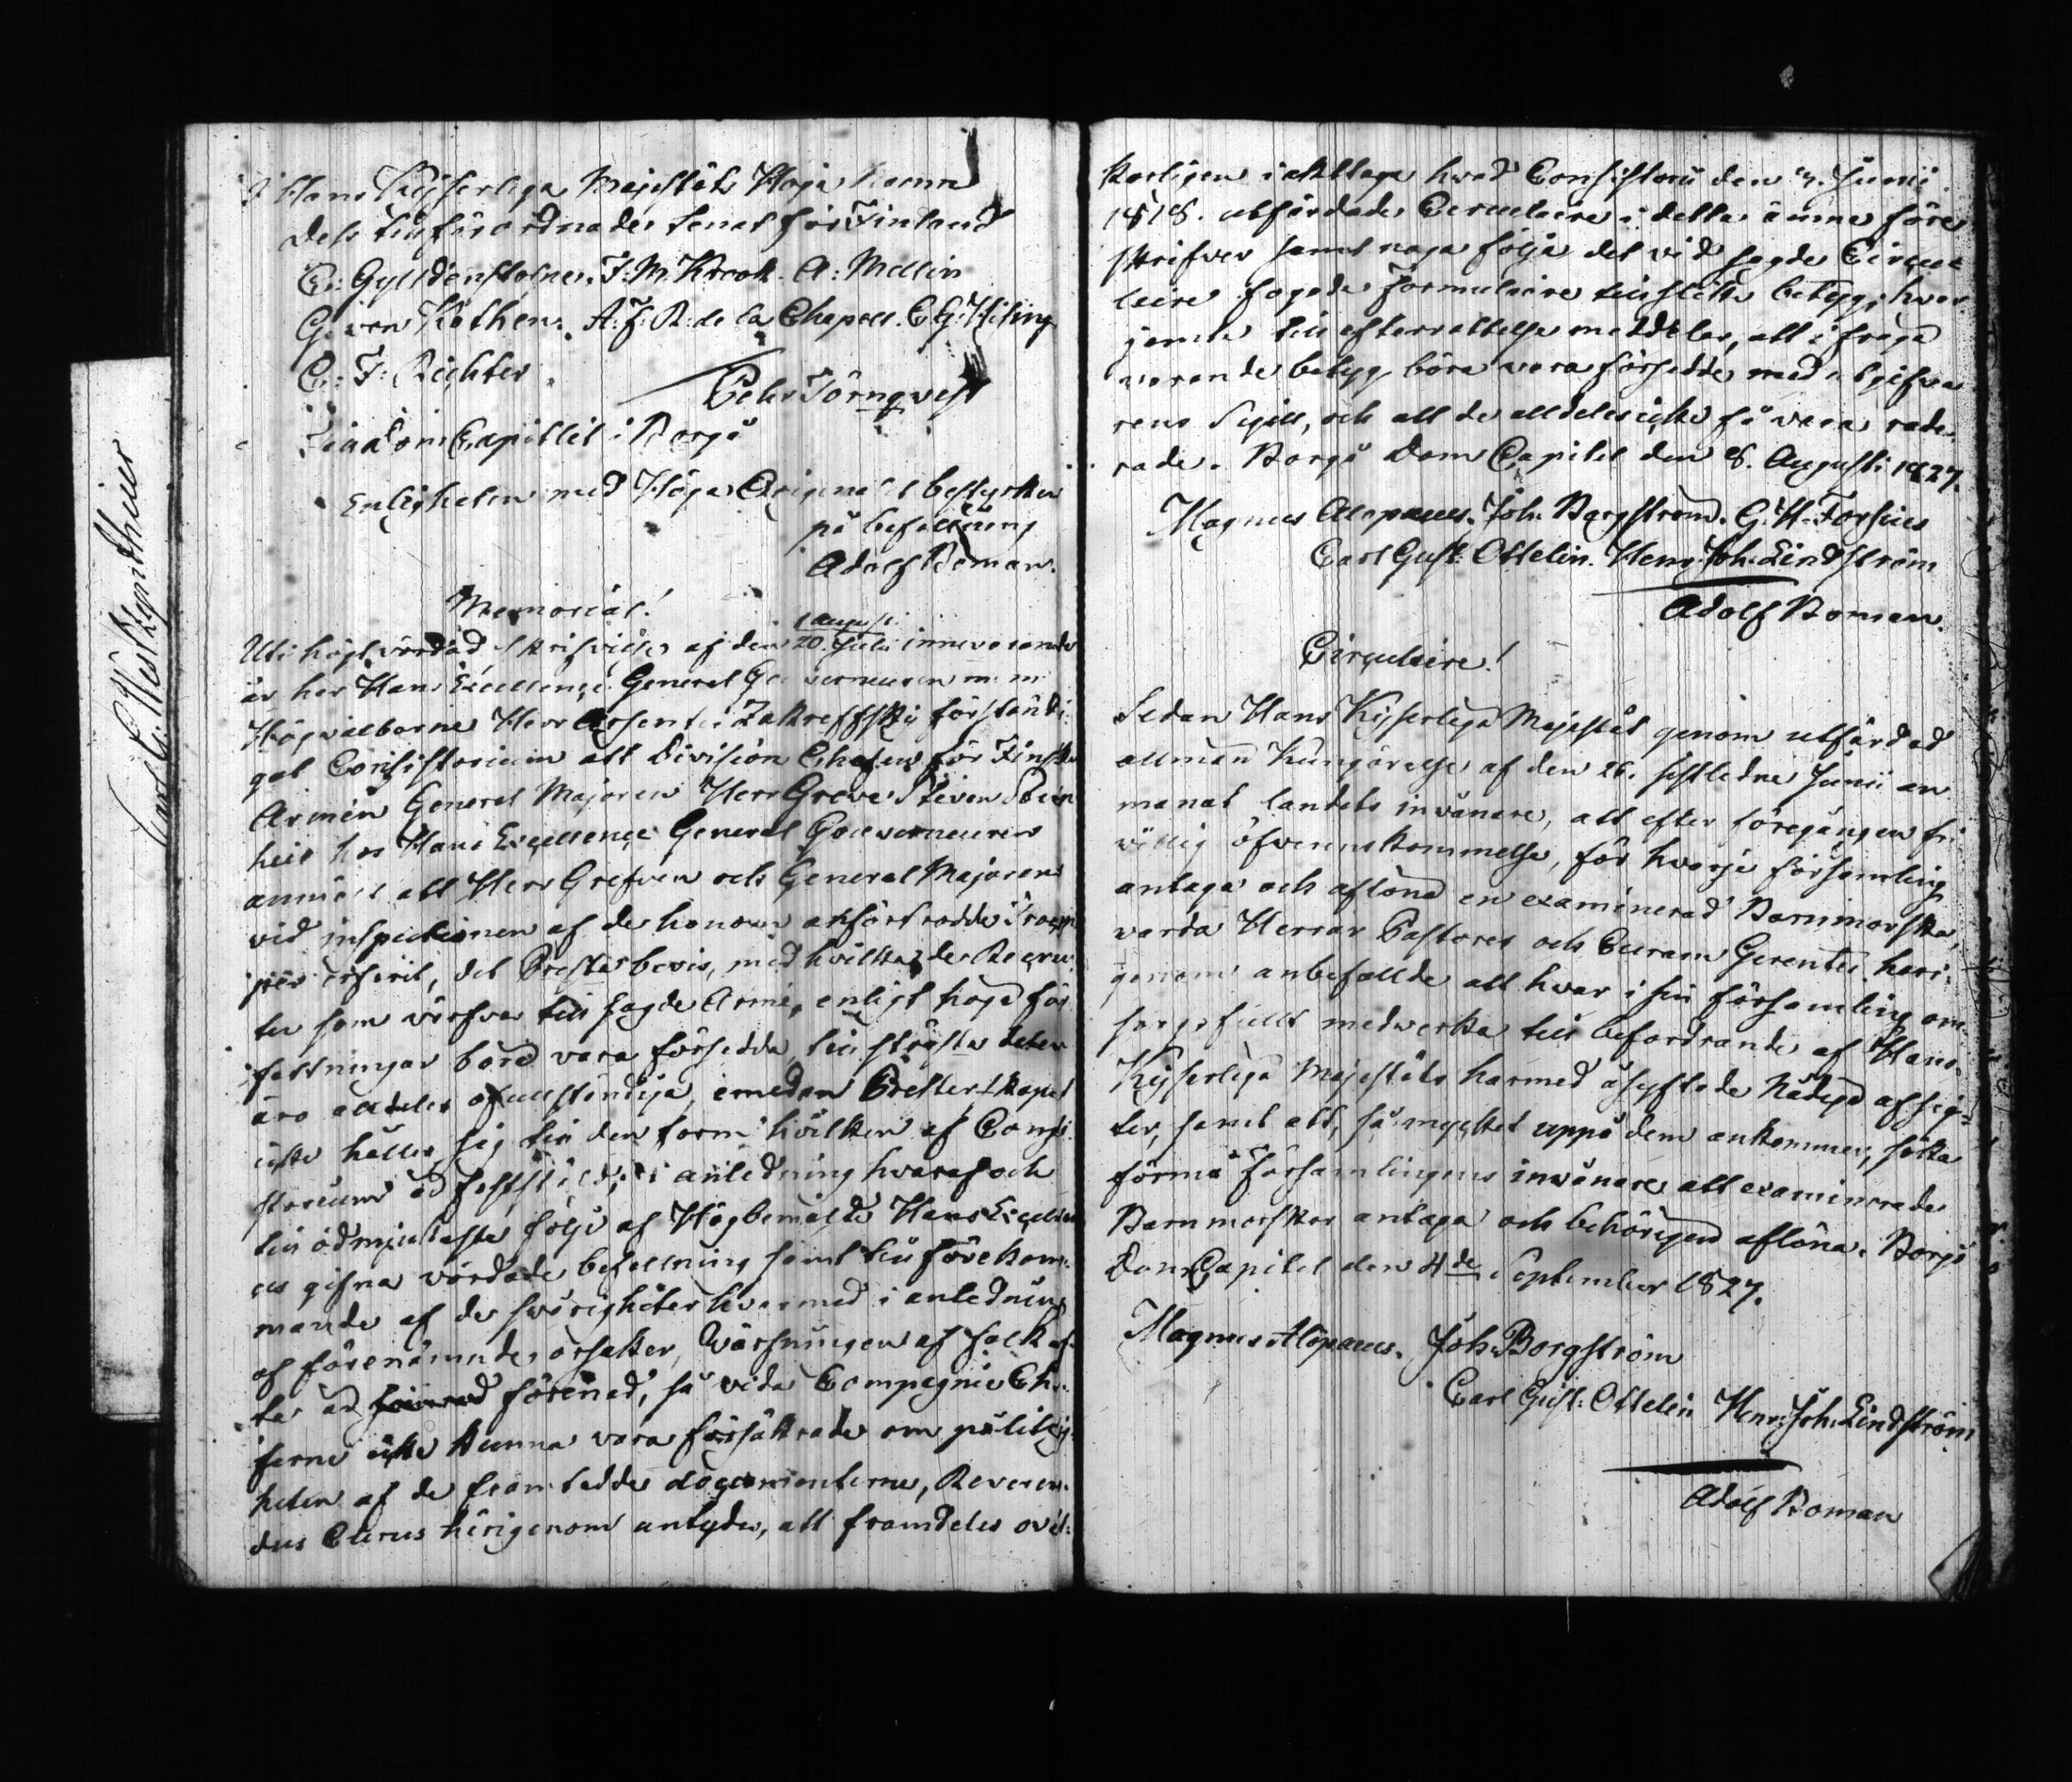 I Hans Kejserliga Majestäts Höga Namn
Dess tillförordnade Senat för Finland
C: Gyldenstolpe. F: M: Krook. A: Mellin
G: von Köthen. A: F: R: de la Chapell. C G: Hising
C: F: Richter.
Pehr Törnqvist
Till Dom Capitlet i Borgå
Enligheten med Höga Originalet bestyrker
på befallning
Adolf Boman.
Memorial!
1 Augusti
Uti högtvördad skrifvelse af den 20. Julii innevarande
år har Hans Excellence General Gouverneuren m m
Högvälborne Herr Arsenii Zakreffskij förständi-
gat Consistorium att Division Chefen för Finska
Armén General Majoren Herr Greve Steven Stein
heil hos Hans Excellence General Gouverneuren
anmält att Herr Grefven och General Majoren
vid inspectionen af de honom anförtrodde Troup
per erfarit, det Prestabevis, med hvilka de Recru
ter som värfvas till sagde Armé, enligt höga för
fattningar böra vara försedda, till största delen
äro alldeles ofullständiga, emedan Presterskapet
icke håller sig till den form hvilken af Consi
storium är fastställd; i anledning hvaraf och
till ödmjukaste följe af Högbemälde Hans Excellen
ces gifna vördade befallning samt till förekom-
mande af de svårigheter hvarmed i anledning
af förenämnde orsaker, Värfningen af folk of-
ta är förenad, så vida Compagnie Che-
ferne icke kunna vara försäkrade om pålitlig-
heten af de framtedde documenterne, Reveren-
dus Clerus härigenom antydes, att framdeles ovil-
Carl G: Westzynthius
korligen iakttaga hvad Consistorii den 3. Junii
1818. utfärdade Circulaire i detta ämne före
skrifver samt noga följa det vid sagde Circu-
laire fogade Formulaire till slika betyg; hvar
jemte till efterrättelse meddelas, att i fråga
varande betyg böra vara försedde med utgifva
rens Sigill, och att de alldeles icke få vara rade-
rade. Borgå Dom Capitel den 8. Augusti 1827.
Magnus Alopaeus. Joh. Borgström. G. H. Forsius
Carl Gust: Ottelin. Henr. Joh. Lindström
Adolf Boman.
Circulaire!
Sedan Hans Kejserliga Majestät genom utfärdad
allmän Kungörelse af den 26. sistledne Junii an
manat landets invånare, att efter föregången fri
villig öfverenskommelse, för hvarje församling
antaga och aflöna en examinerad Barnmorska,
varda Herrar Pastores och Curam Gerentes häri-
genom anbefallde att hvar i sin församling om-
sorgsfullt medverka till befordrande af Hans
Kejserliga Majestäts härmed åsyftade Nådiga afsig-
ter, samt att, så mycket uppå dem ankommer, söka
förmå Församlingens invånare att examinerade
Barnmorskor antaga och behörigen aflöna. Borgå
Dom Capitel den 4de September 1827.
Magnus Alopaeus. Joh. Borgström
Carl Gust: Ottelin Henr: Joh. Lindström
Adolf Boman